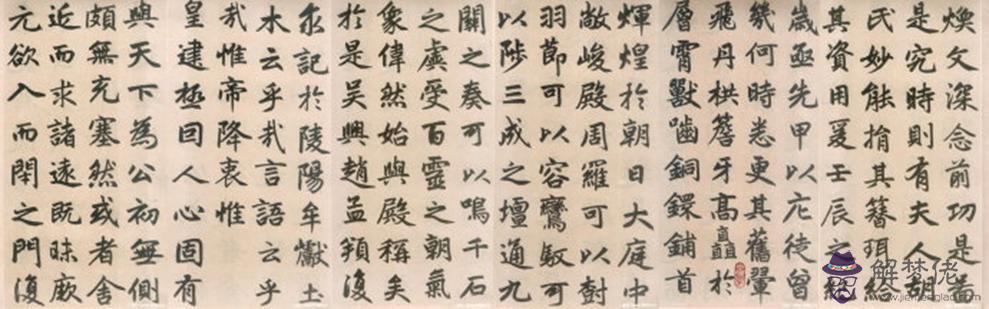 煥文深念前功是啚
是究時則有夫人胡
氏妙能捐其簪珥給
其資用爰壬辰之紀
歲亟先甲以庀徒曾
幾何時悉更其舊翬
飛丹栱簷牙高矗於
層霄獸嚙銅鐶鋪首
輝煌於朝日大庭中
敞峻殿周羅可以對
羽節可以容鸞馭可
以陟三成之壇通九
關之奏可以鳴千石
之虡受百靈之朝氣
象偉然始與殿稱矣
於是吳興趙孟頫復
求記於陵陽牟巘土
木云乎哉言語云乎
哉惟帝降衷惟
皇建極囙人心固有
與天下為公初無側
頗無充塞然或者舍
近而求諸遠既昧厥
元欲入而閇之門復
解梦佬